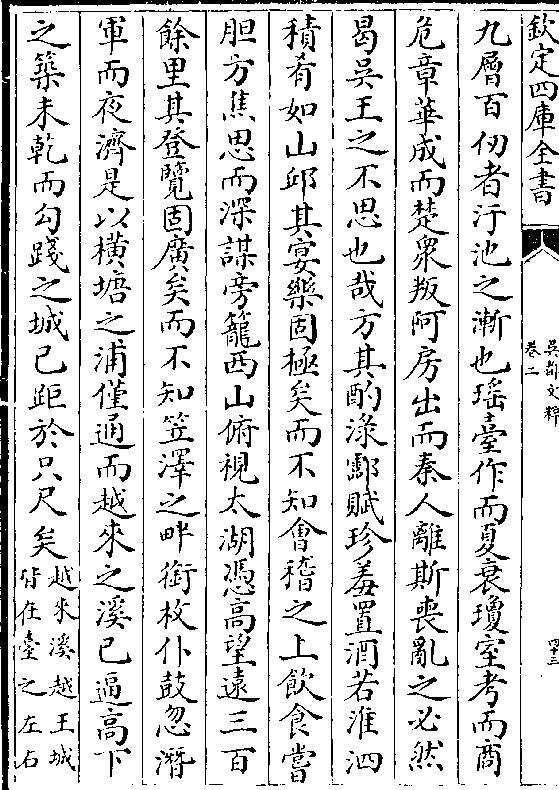 欽定四庫全書
吳都文粹
卷二
四十三
九層百仞者汙池之漸也瑤臺作而夏衰瓊室考而商
危章華成而楚衆叛阿房出而秦人離斯喪亂之必然
曷吳王之不思也哉方其酌淥酃賦珍羞置酒若淮泗
積肴如山邱其宴樂固極矣而不知會稽之上飲食嘗
胆方焦思而深謀旁籠西山俯視太湖憑高望遠三百
餘里其登覽固廣矣而不知笠澤之畔銜枚仆鼓忽潛
軍而夜濟是以橫塘之浦僅通而越來之溪已逼高下
之築未乾而勾踐之城已距於只尺矣
越來溪越王城
皆在臺之左右